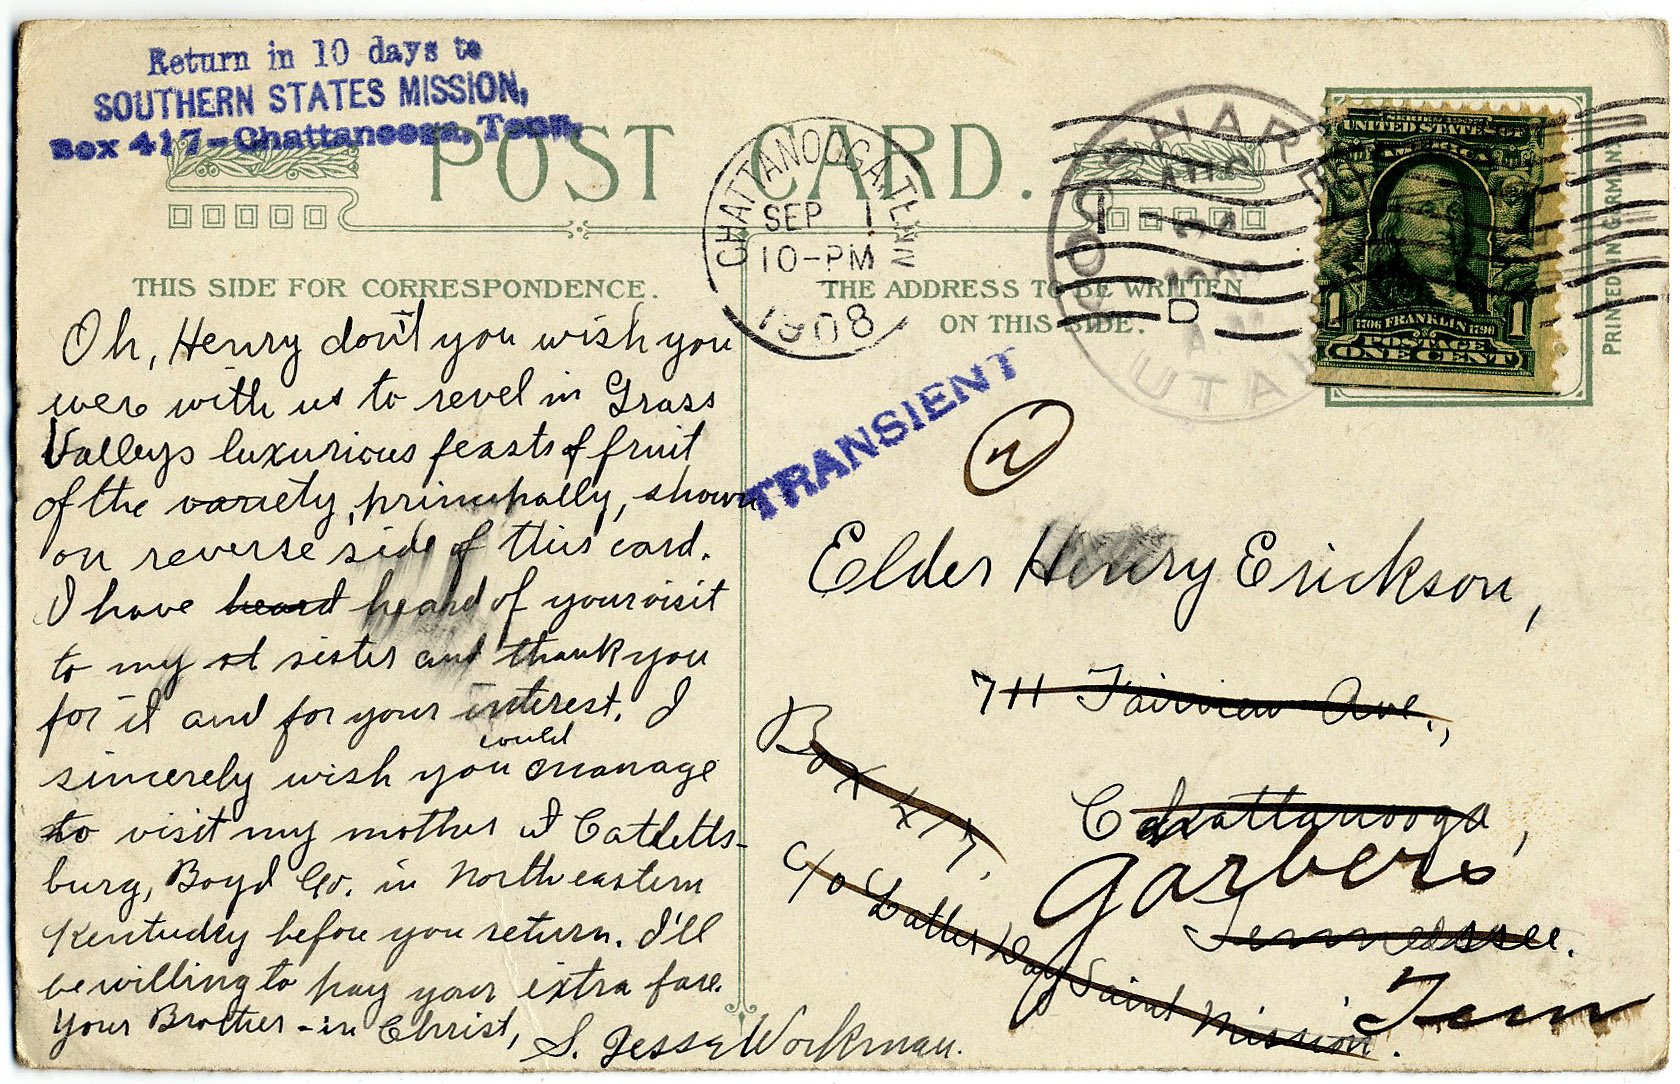 Return in 10 days to
SOUTHERN STATES MISSION,
Box 417-Chattanooga, Tenn.
POST CARD.
CHATTANOOGA, TENN.
SEP 1
10-PM
1908
D
UTAH
UNITED STATES OF
AMERICA
1706 FRANKLIN 1790
POSTAGE
1 ONE CENT 1
PRINTED IN GERMANY
THIS SIDE FOR CORRESPONDENCE.
THE ADDRESS TO BE WRITTEN
ON THIS SIDE.
TRANSIENT
Oh, Henry don't you wish you
were with us to revel in Grass
Valleys luxurious feasts of fruit
of the variety, principally, shown
on reverse side of this card.
I have heard heard of your visit
to my st sister and thank you
for it and for your interest. I
sincerely wish you could manage
to visit my mother at Catletts-
burg, Boyd Co. in North eastern
Kentucky before you return. I'll
be willing to pay your extra fare.
Your Brother-in Christ,
S. Jesse Workman.
Elder Henry Erickson,
711 Fairview Ave.,
Chattanooga,
Tennessee.
Box 417.
c/o Latter Day Saint Mission.
Garbers
Tenn